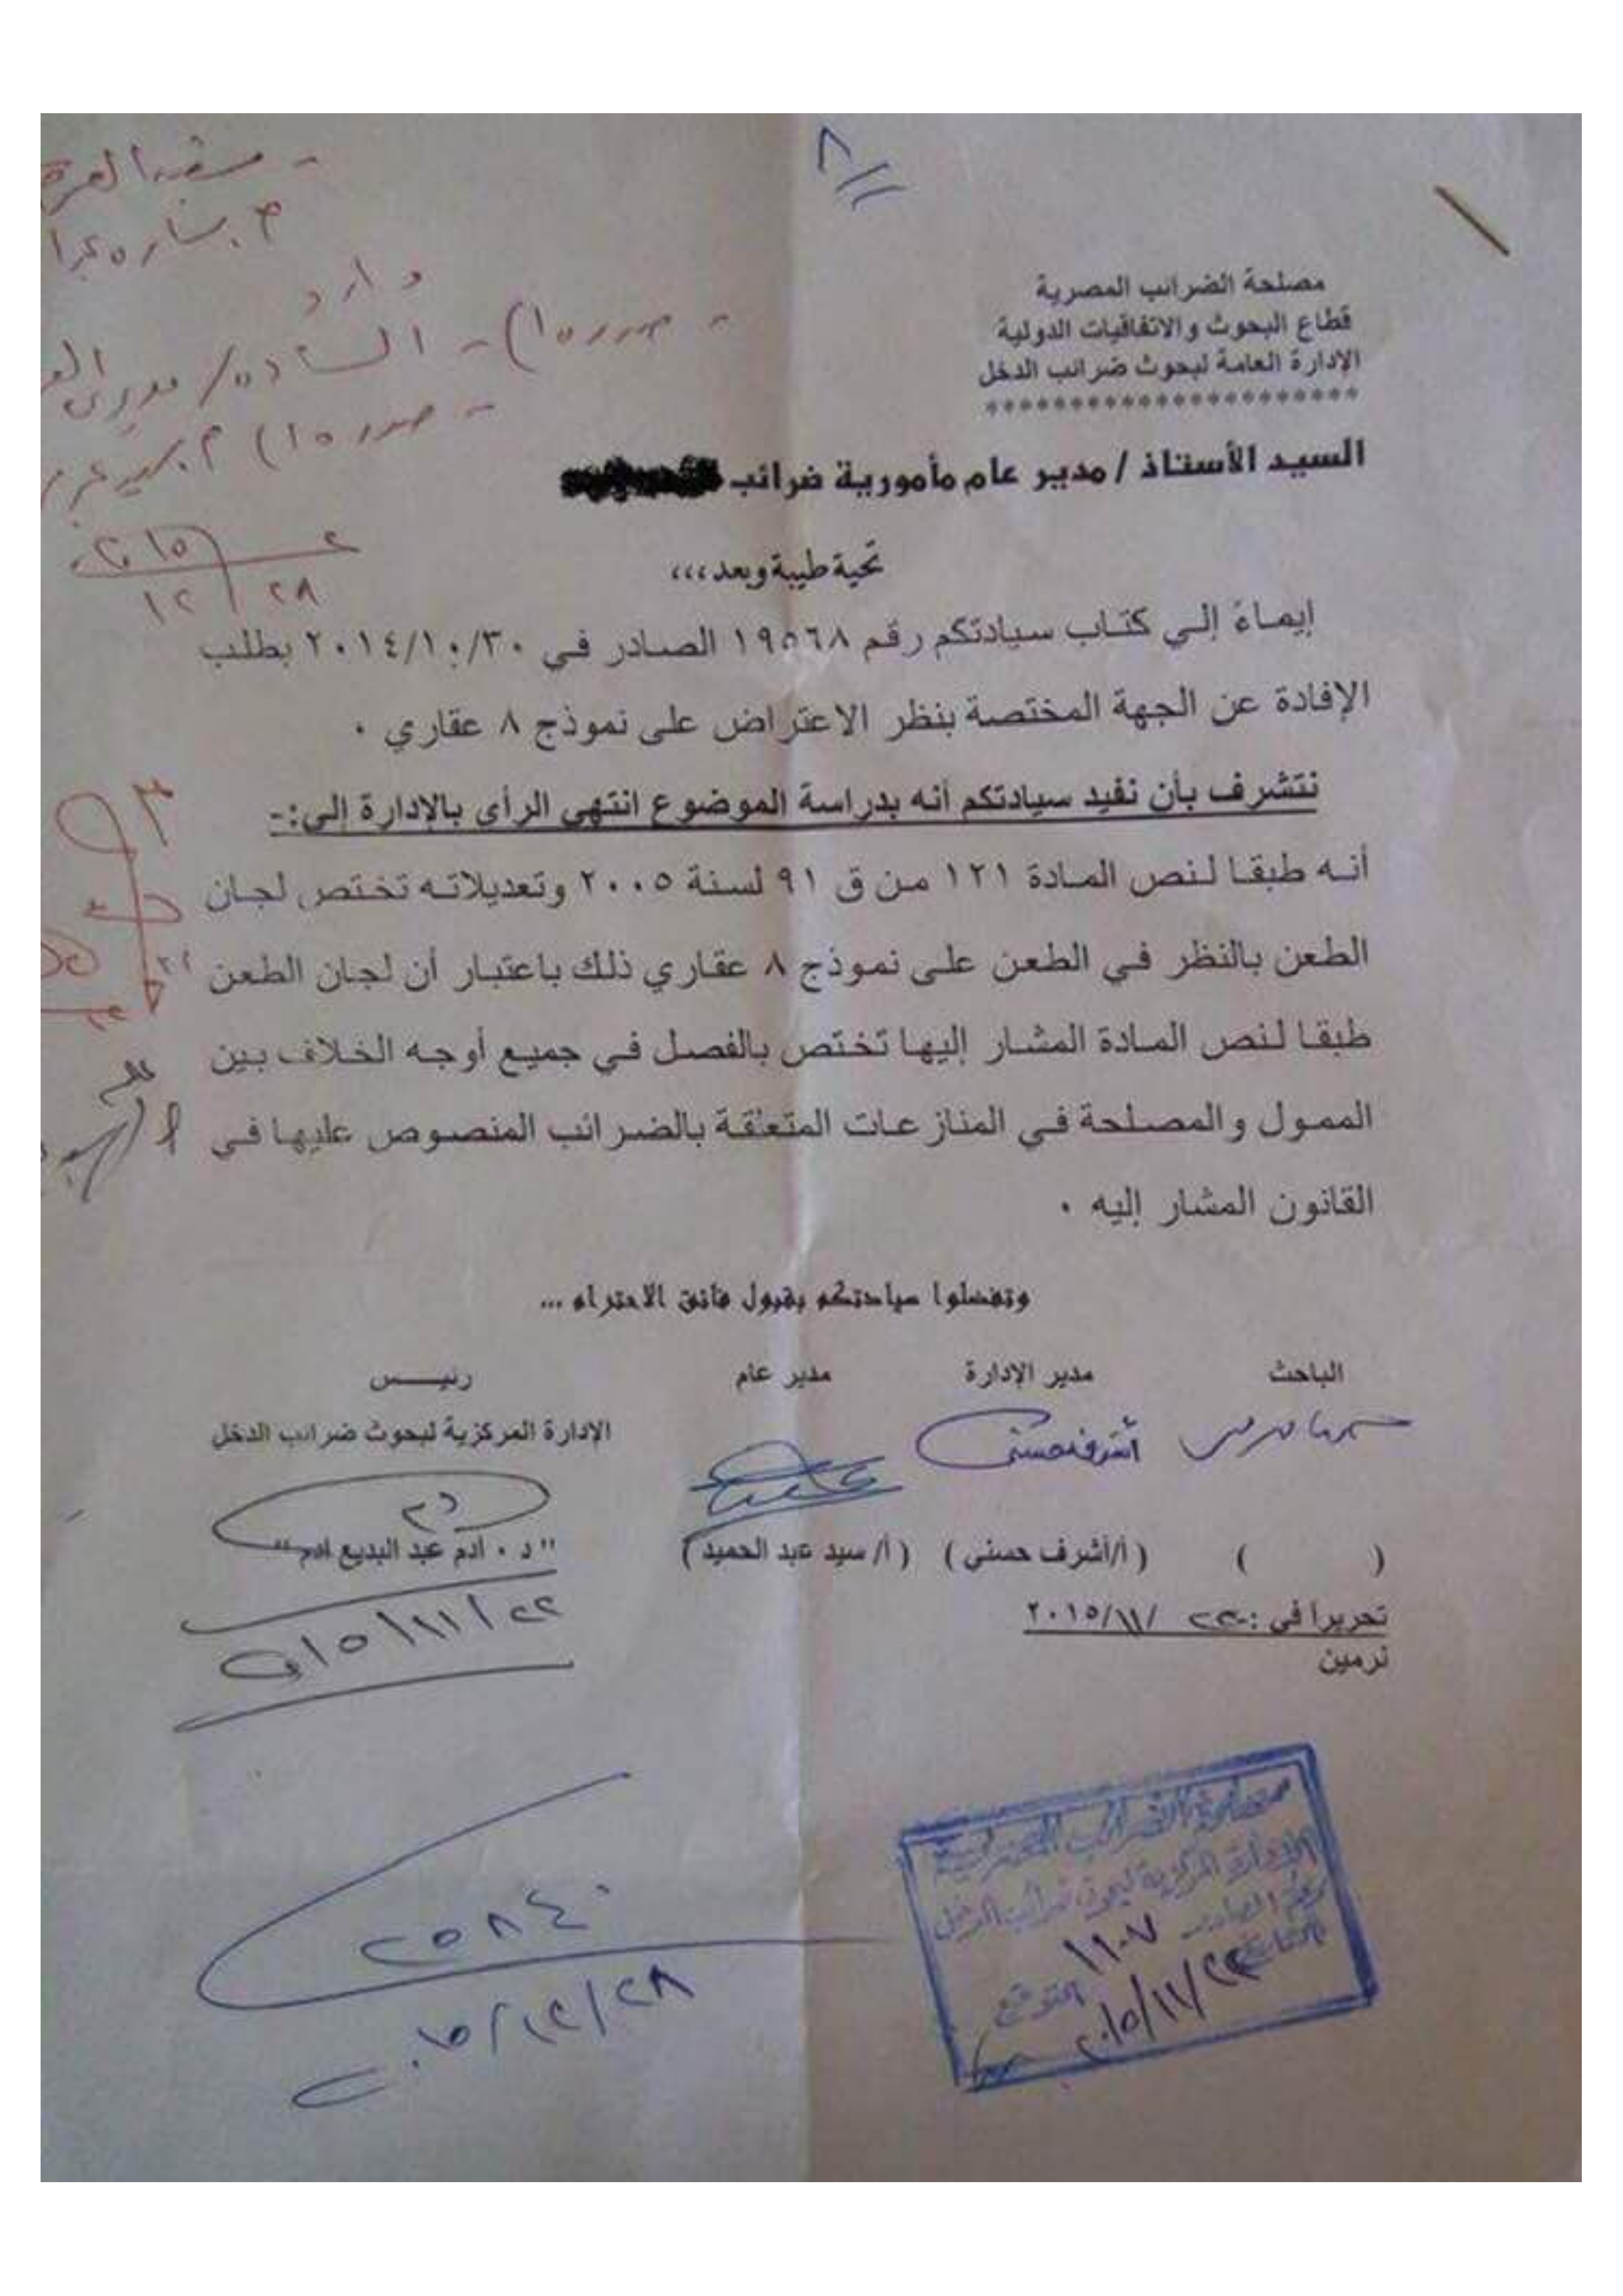 ٨
مصلحة الضرائب المصرية
قطاع البحوث والاتفاقيات الدولية
الإدارة العامة لبحوث ضرائب الدخل
**********************
السيد الأستاذ / مدير عام مأمورية ضرائب
تحية طيبة وبعد ،،،
إيماءً إلي كتاب سيادتكم رقم ١٩٥٦٨ الصادر في ٢٠١٤/١٠/٣٠ بطلب
الإفادة عن الجهة المختصة بنظر الاعتراض على نموذج ٨ عقاري .
نتشرف بأن نفيد سيادتكم أنه بدراسة الموضوع انتهى الرأى بالإدارة إلى:-
أنه طبقا لنص المادة ١٢١ من ق ٩١ لسنة ٢٠٠٥ وتعديلاته تختص لجان
الطعن بالنظر في الطعن على نموذج ٨ عقاري ذلك باعتبار أن لجان الطعن
طبقا لنص المادة المشار إليها تختص بالفصل في جميع أوجه الخلاف بين
الممول والمصلحة في المنازعات المتعلقة بالضرائب المنصوص عليها في
القانون المشار إليه .
وتفضلوا سيادتكم بقبول فائق الاحترام ...
الباحث مدير الإدارة مدير عام رئيــــس
الإدارة المركزية لبحوث ضرائب الدخل
أشرف حسني
( ) ( أ/أشرف حسنى ) ( أ/ سيد عبد الحميد ) " د . ادم عبد البديع ادم "
تحريرا في : ٢٢ /١١/٢٠١٥
٢٠١٥/١١/٢٢
نرمين
مصلحة الضرائب المصرية
الإدارة المركزية لبحوث ضرائب الدخل
رقم الصادر ١١٠٧
التاريخ ٢٠١٥/١١/٢٢
التوقيع
٢٥٨٤٠
٢٠١٥/١٢/٢٨
٢٠١٥
١٢/٢٨